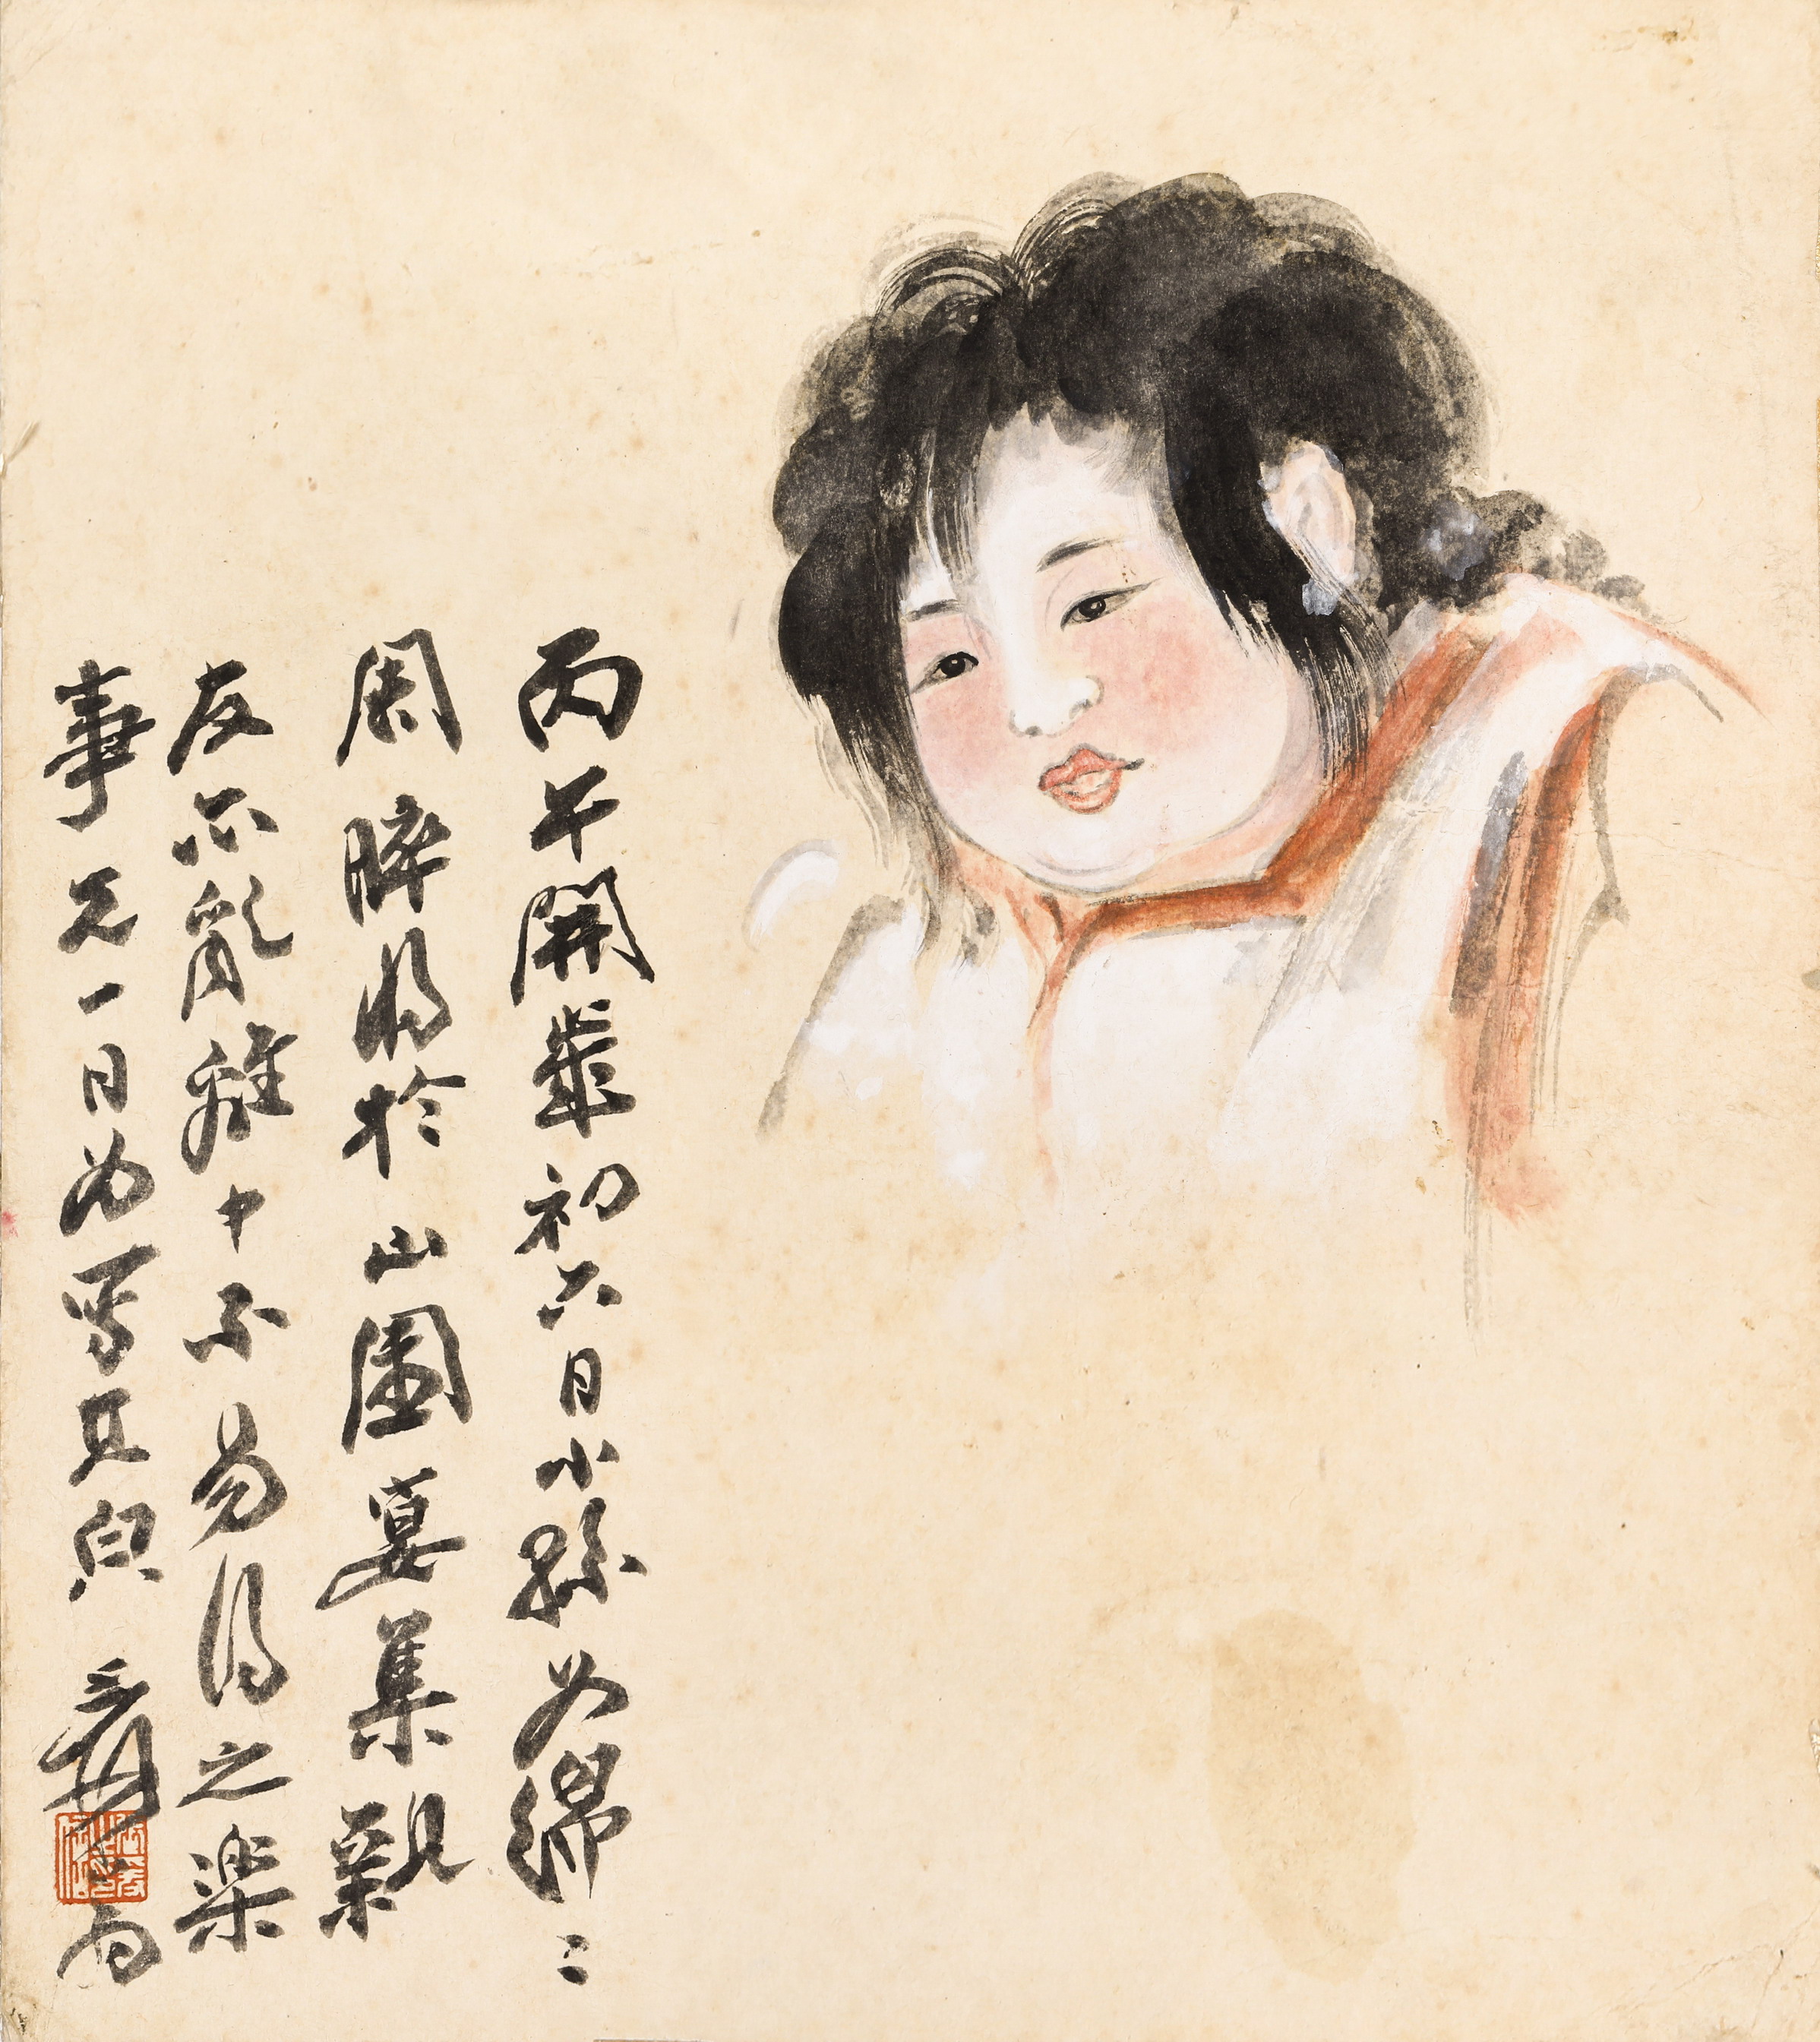 丙午開歲初六日小孫女綿〻
周晬將於山園宴集親
友亦亂離中不易得之樂
事先一日為寫其皃 爰翁